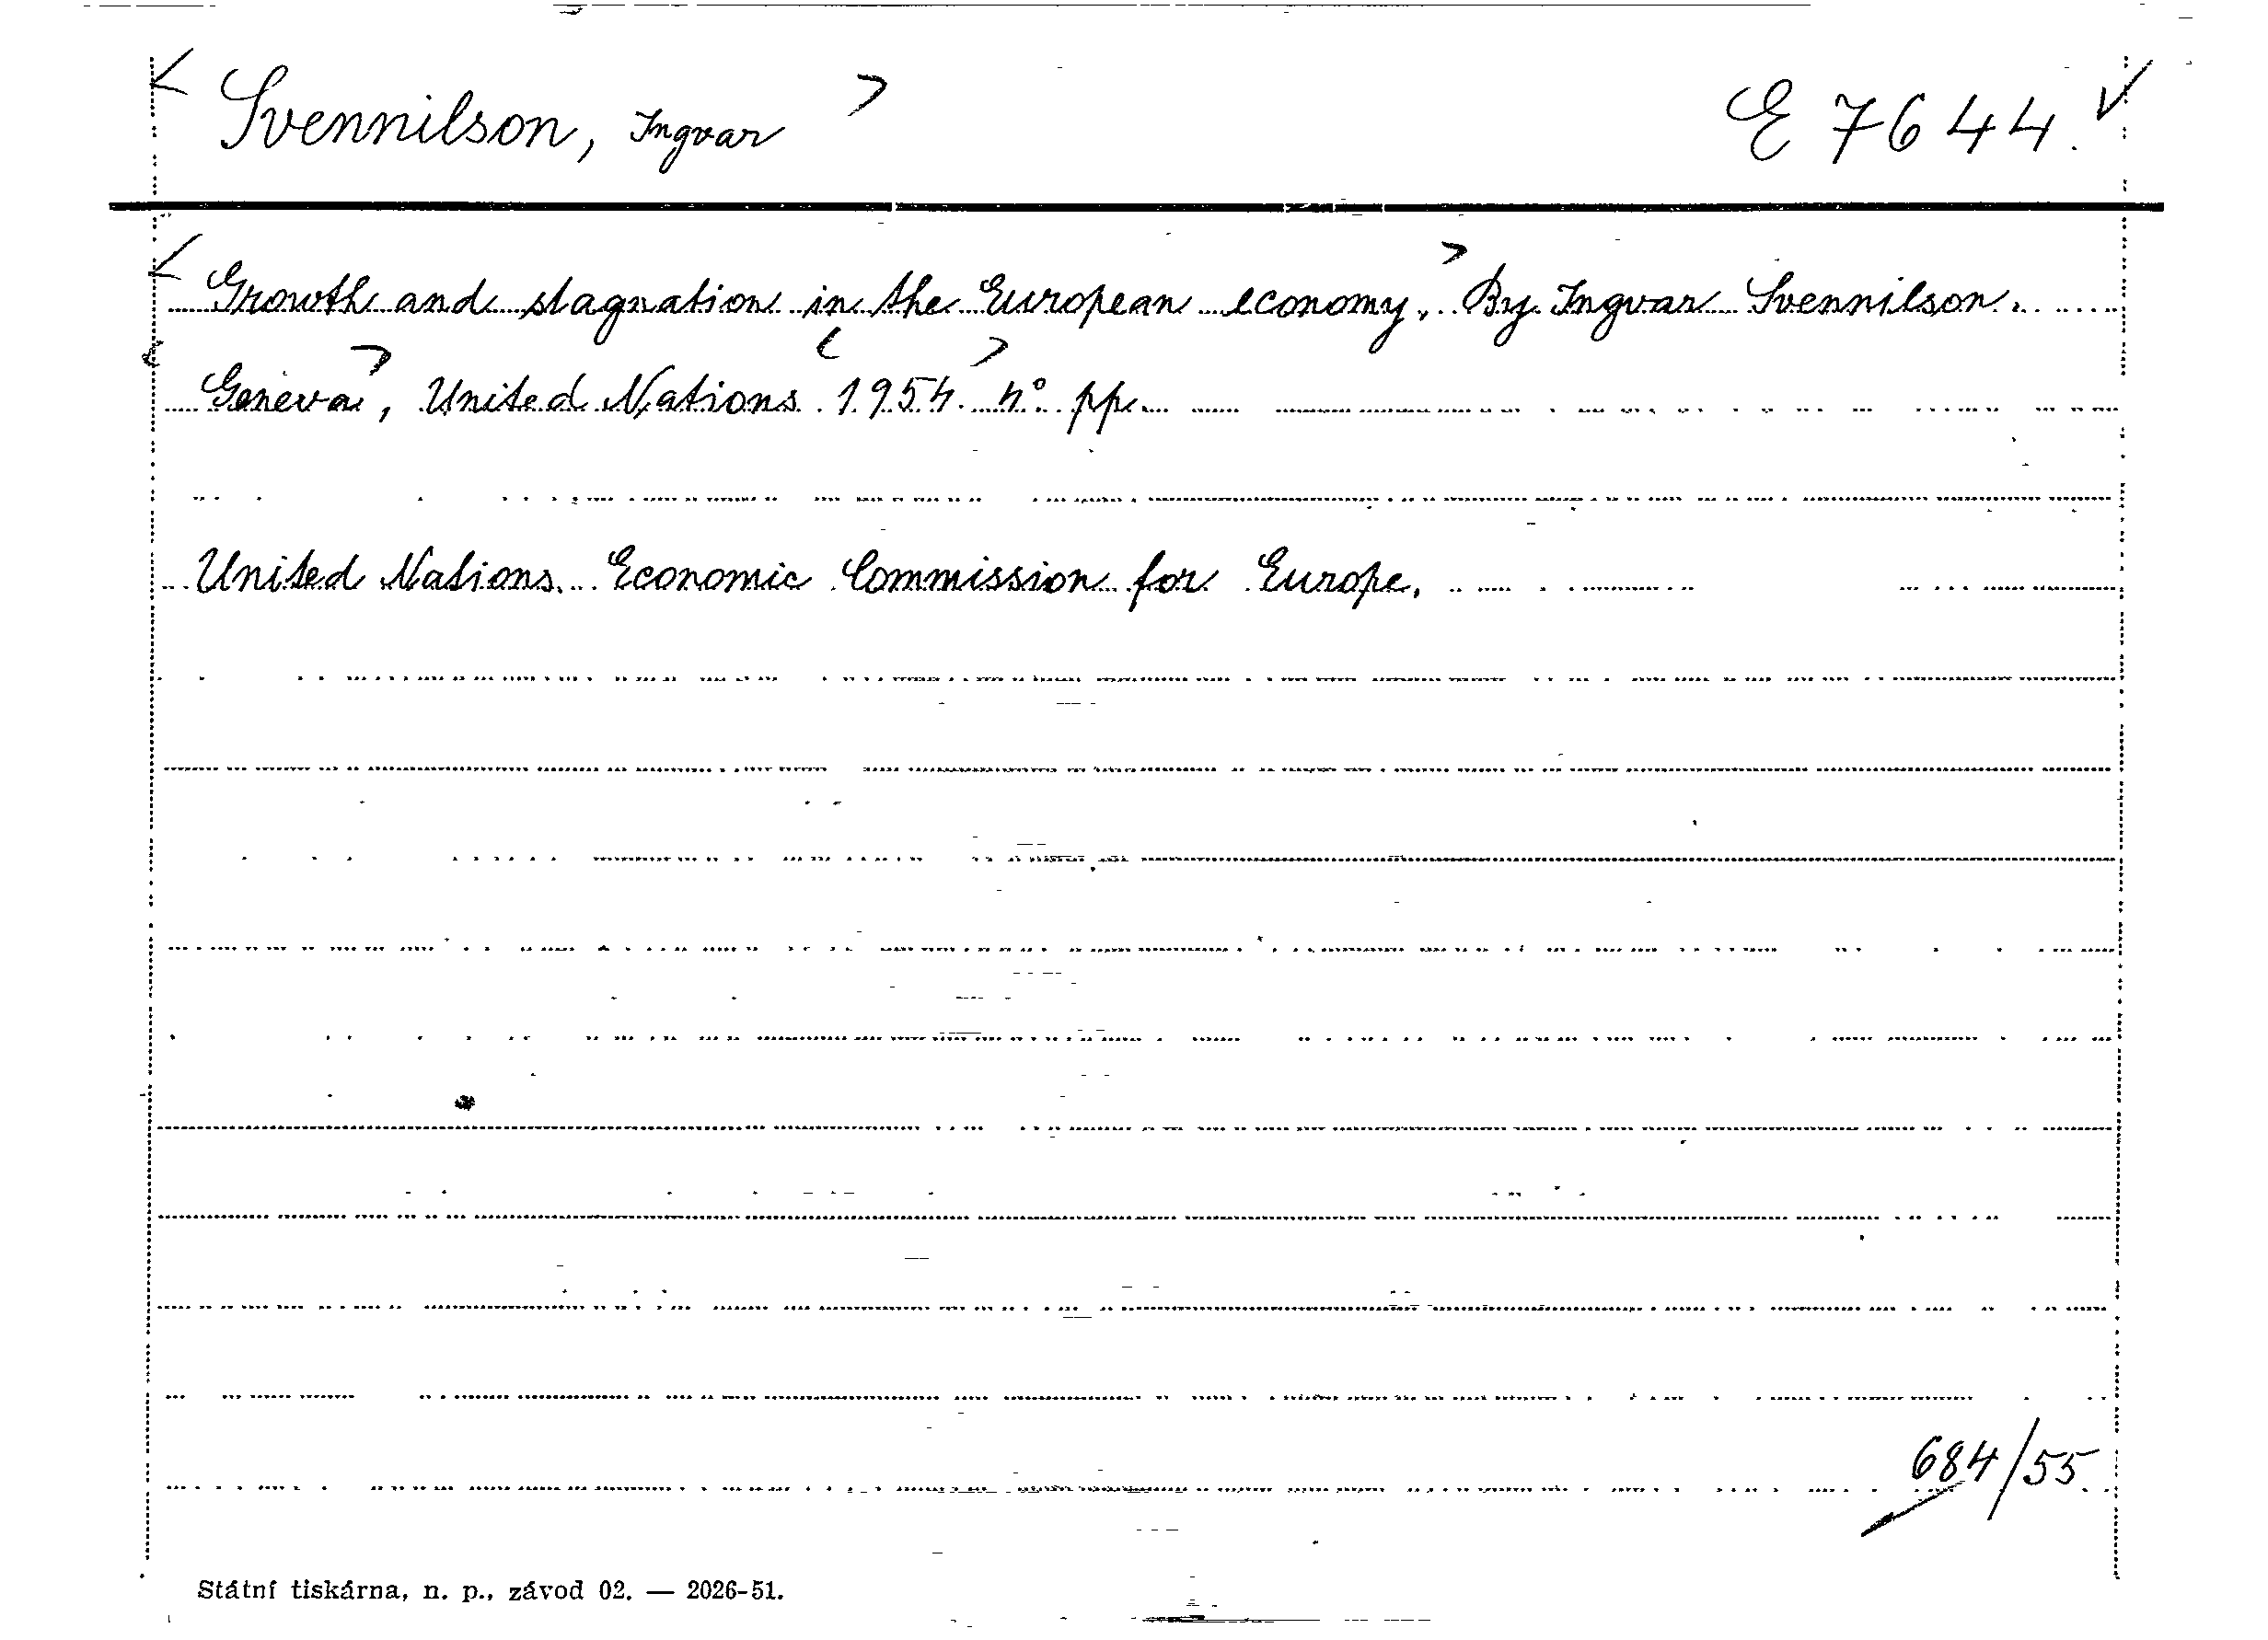 < Svennilson, Ingvar > E 7644. ✓
< Growth and stagnation in the European economy. > By Ingvar Svennilson.
< Geneva >, United Nations < 1954. > 4° pp.
United Nations. Economic Commission for Europe.
684/55.
Státní tiskárna, n. p., závod 02. — 2026-51.